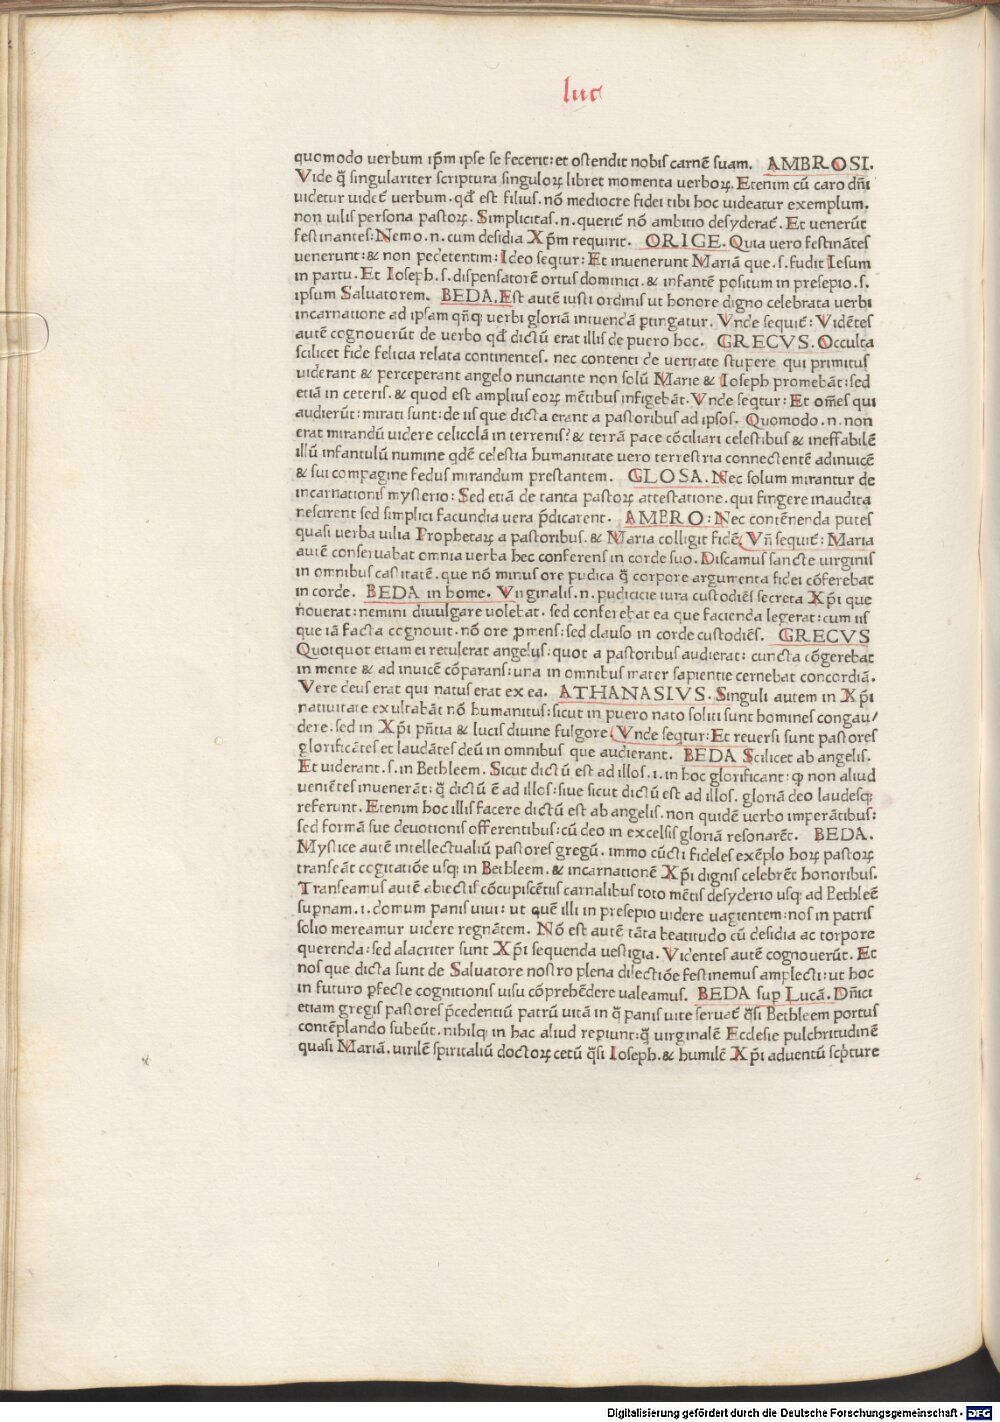 luc
quomodo uerbum ip̄m ipse se fecerit: et ostendit nobis carnē suam. AMBROSI.
Vide q̄ singulariter scriptura singuloꝝ libret momenta uerboꝝ. Etenim cū caro dn̄i
uidetur uidet᷑ uerbum. qd̄ est filius. nō mediocre fidei tibi hoc uideatur exemplum.
non uilis persona pastoꝝ. Simplicitas .n. querit᷑ nō ambitio desyderat᷑. Et uenerūt
festinantes: Nemo .n. cum desidia Xp̄m requirit. ORIGE. Quia uero festināntes
uenerunt: & non pedetentim: Ideo seqtur: Et inuenerunt Mariā que .s. fudit Iesum
in partu. Et Ioseph .s. dispensatorē ortus dominici. & infantē positum in presepio .s.
ipsum Saluatorem. BEDA. Est autē iusti ordinis ut honore digno celebrata uerbi
incarnatione ad ipsam qn̄q; uerbi gloriā intuendā ꝑtingatur. Vnde sequit᷑: Vidētes
autē cognouerūt de uerbo qd̄ dictū erat illis de puero hoc. GRECVS. Occulta
scilicet fide felicia relata continentes. nec contenti de ueritate stupere qui primitus
uiderant & perceperant angelo nunciante non solū Marie & Ioseph promebāt: sed
etiā in ceteris. & quod est amplius eoꝝ mētibus infigebāt. Vnde seqtur: Et om̄es qui
audierūt: mirati sunt: de iis que dicta erant a pastoribus ad ipsos. Quomodo .n. non
erat mirandū uidere celicolā in terrenis? & terrā pace cōciliari celestibus & ineffabilē
illū infantulū numine qdē celestia humanitate uero terrestria connectentē adinuicē
& sui compagine fedus mirandum prestantem. GLOSA. Nec solum mirantur de
incarnationis mysterio: Sed etiā de tanta pastoꝝ attestatione. qui fingere inaudita
nescirent sed simplici facundia uera p̄dicarent. AMBRO: Nec contēnenda putes
quasi uerba uilia Prophetaꝝ a pastoribus. & Maria colligit fidē Vn̄ sequit᷑: Maria
autē conseruabat omnia uerba hec conferens in corde suo. Discamus sancte uirginis
in omnibus castitatē. que nō minus ore pudica q̄ corpore argumenta fidei cōferebat
in corde. BEDA in home. Virginalis .n. pudicicie iura custodiēs secreta Xp̄i que
nouerat: nemini diuulgare uolebat. sed conferebat ea que facienda legerat: cum iis
que iā facta cognouit. nō ore ꝓmens: sed clauso in corde custodiēs. GRECVS
Quotquot etiam ei retulerat angelus: quot a pastoribus audierat: cuncta cōgerebat
in mente & ad inuicē cōparans: una in omnibus mater sapientie cernebat concordiā.
Vere deus erat qui natus erat ex ea. ATHANASIVS. Singuli autem in Xp̄i
natiuitate exultabāt nō humanitus: sicut in puero nato soliti sunt homines congau/
dere. sed in Xp̄i pn̄tia & lucis diuine fulgore Vnde seqtur: Et reuersi sunt pastores
glorificātes et laudātes deū in omnibus que audierant. BEDA Scilicet ab angelis.
Et uiderant .s. in Bethleem. Sicut dictū est ad illos .i. in hoc glorificant: ꝙ non aliud
uenientes inuenerāt: q̄ dictū ē ad illos: siue sicut dictū est ad illos. gloriā deo laudesq;
referunt. Etenim hoc illis facere dictū est ab angelis. non quidē uerbo imperātibus:
sed formā sue deuotionis offerentibus: cū deo in excelsis gloriā resonarēt. BEDA.
Mystice autē intellectualiū pastores gregū. immo cūcti fideles exēplo hoꝝ pastoꝝ
transeāt cogitatiōe usq; in Bethleem. & incarnationē Xp̄i dignis celebrēt honoribus.
Transeamus autē abiectis cōcupiscētiis carnalibus toto mētis desyderio usq; ad Bethleē
suꝑnam .i. domum panis uiui: ut quē illi in presepio uidere uagientem: nos in patris
solio mereamur uidere regnātem. Nō est autē tāta beatitudo cū desidia ac torpore
querenda: sed alacriter sunt Xp̄i sequenda uestigia. Videntes autē cognouerūt. Et
nos que dicta sunt de Saluatore nostro plena dilectiōe festinemus amplecti: ut hoc
in futuro ꝑfecte cognitionis uisu cōprehēdere ualeamus. BEDA sup Lucā. Dn̄ici
etiam gregis pastores p̄cedentiū patrū uitā in q̄ panis uite seruat᷑ q̄si Bethleem portus
contēplando subeūt. nihilq; in hac aliud reꝑiunt: q̄ uirginalē Ecclesie pulchritudinē
quasi Mariā. uirilē spiritaliū doctoꝝ cetū q̄si Ioseph. & humilē Xp̄i aduentū scp̄ture
Digitalisierung gefördert durch die Deutsche Forschungsgemeinschaft - DFG